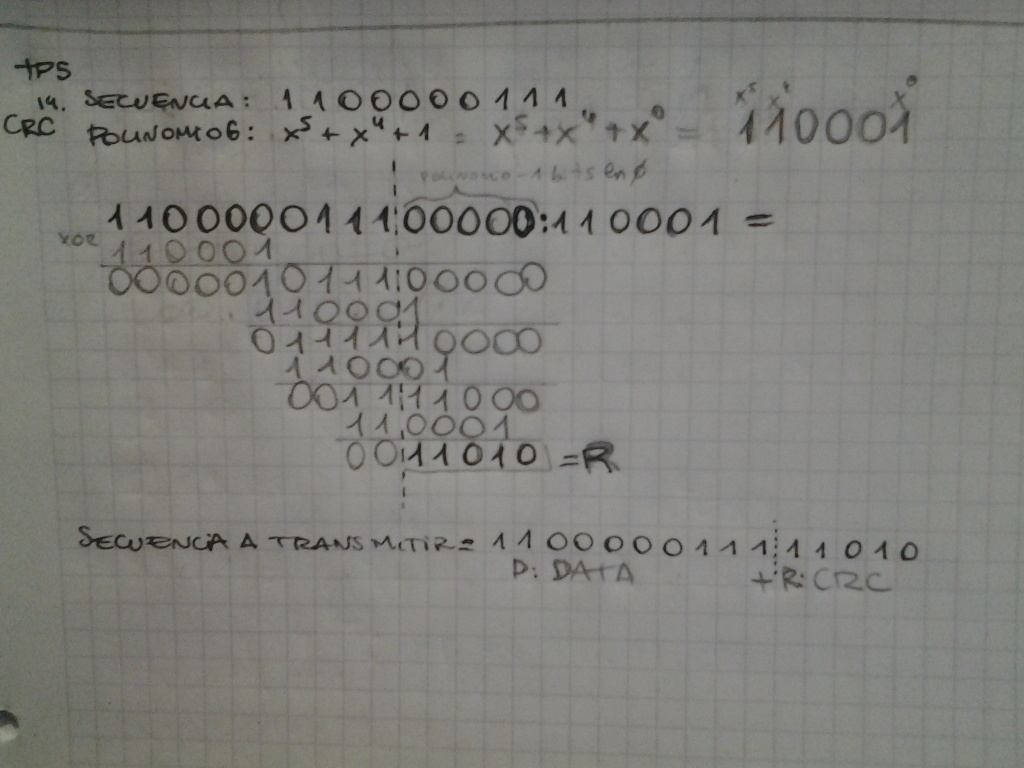 TP5
14. SECUENCIA: 1100000111
CRC POLINOMIO G: x⁵ + x⁴ + 1 = x⁵ + x⁴ + x⁰ = 110001
x⁵ x⁴ x⁰
POLINOMIO - 1 bits en 0
110000011100000:110001 =
XOR 110001
000001011100000
110001
01111110000
110001
0011111000
110001
0011010 = R
SECUENCIA A TRANSMITIR = 110000011111010
D: DATA + R: CRC